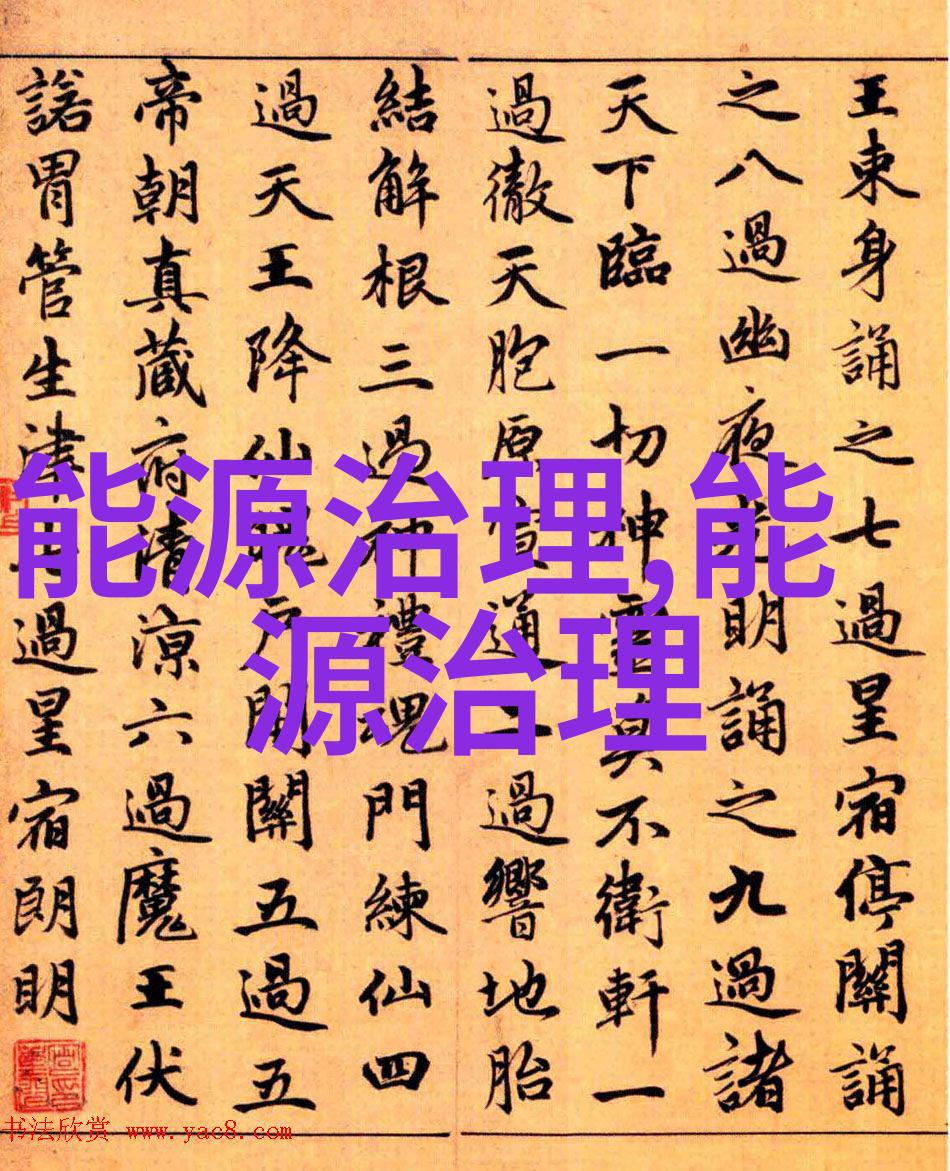 王東身誦之七過星宿停關誦
之八過幽夜光明誦之九過諸
天下臨一切神靈莫不衛軒一
過徹天胞原宣通二過響地胎
結解根三過神禮魂門練仙四
過天王降仙戶開關五過五
帝朝真藏府清涼六過魔王伏
諾胃管生津過星宿朗明
能源治理,能
源治理
书法欣赏 www.yac8.com